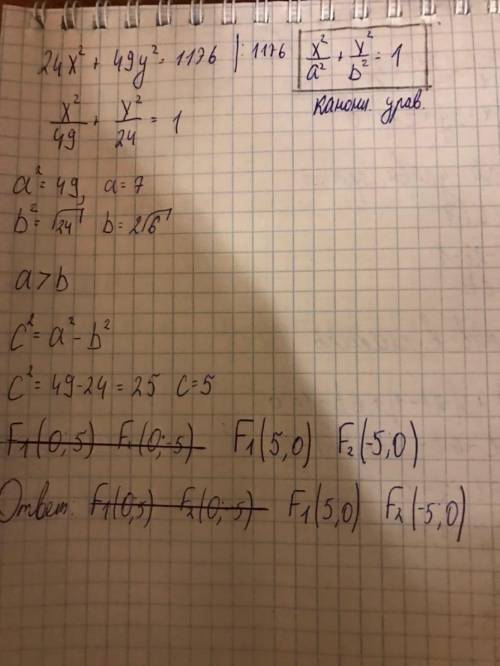 24x² + 49y² = 1176 | : 1176
x²/a² + y²/b² = 1
канони. урав.
x²/49 + y²/24 = 1
a² = 49, a = 7
b² = √24 b = 2√6
a > b
c² = a² - b²
c² = 49 - 24 = 25 c = 5
~~F₁(0, 5) F₂(0; -5)~~ F₁(5, 0) F₂(-5, 0)
Ответ. ~~F₁(0, 5) F₂(0; -5)~~ F₁(5, 0) F₂(-5; 0)